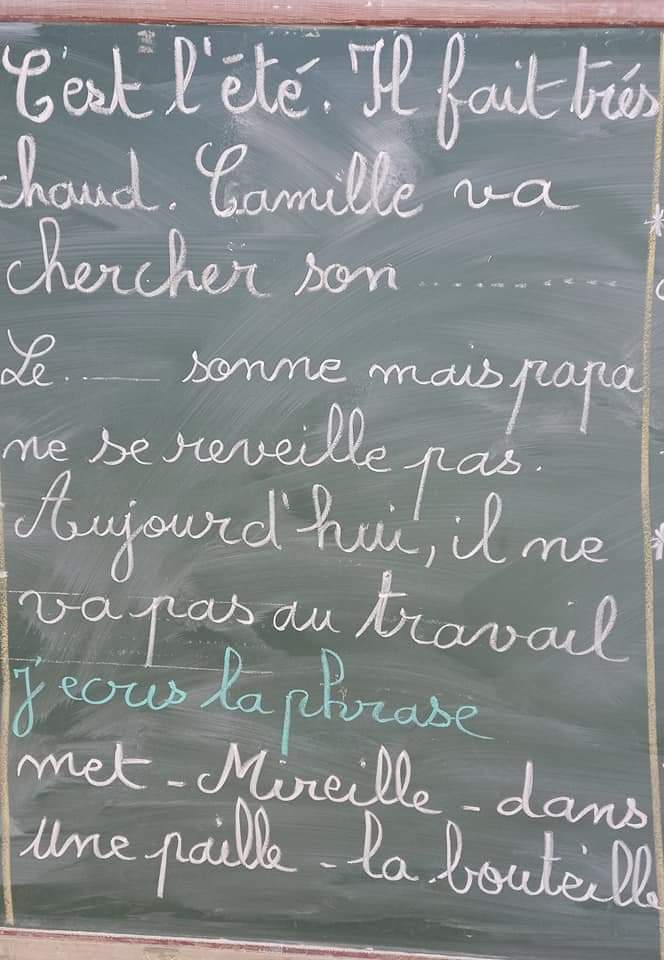 C'est l'été. Il fait trés
chaud. Camille va
chercher son ............
Le ..... sonne mais papa
ne se reveille pas.
Aujourd'hui, il ne
va pas au travail
j'ecris la phrase
met - Mireille - dans
une paille - la bouteille